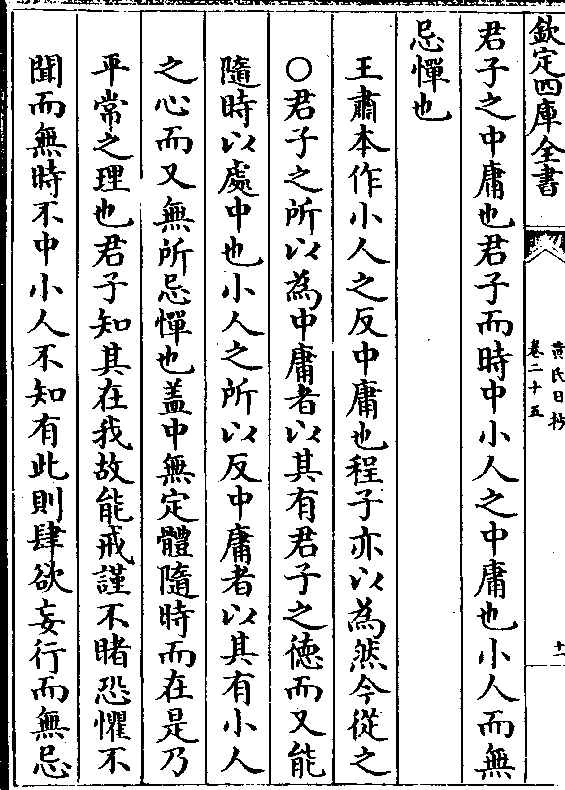 欽定四庫全書
黄氏日抄
卷二十五
十一
君子之中庸也君子而時中小人之中庸也小人而無
忌憚也
王肅本作小人之反中庸也程子亦以為然今從之
○君子之所以為中庸者以其有君子之徳而又能
隨時以處中也小人之所以反中庸者以其有小人
之心而又無所忌憚也盖中無定體隨時而在是乃
平常之理也君子知其在我故能戒謹不睹恐懼不
聞而無時不中小人不知有此則肆欲妄行而無忌